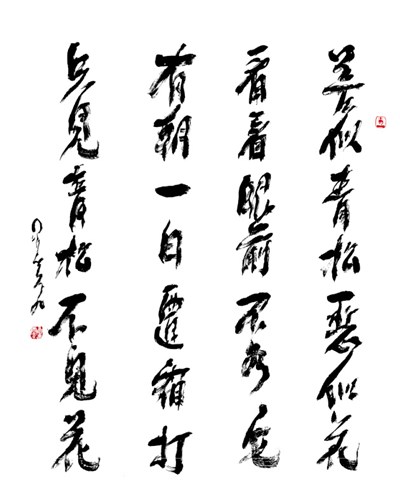 善似青松恶似花
看看眼前不如它
有朝一日遭霜打
只見青松不見花